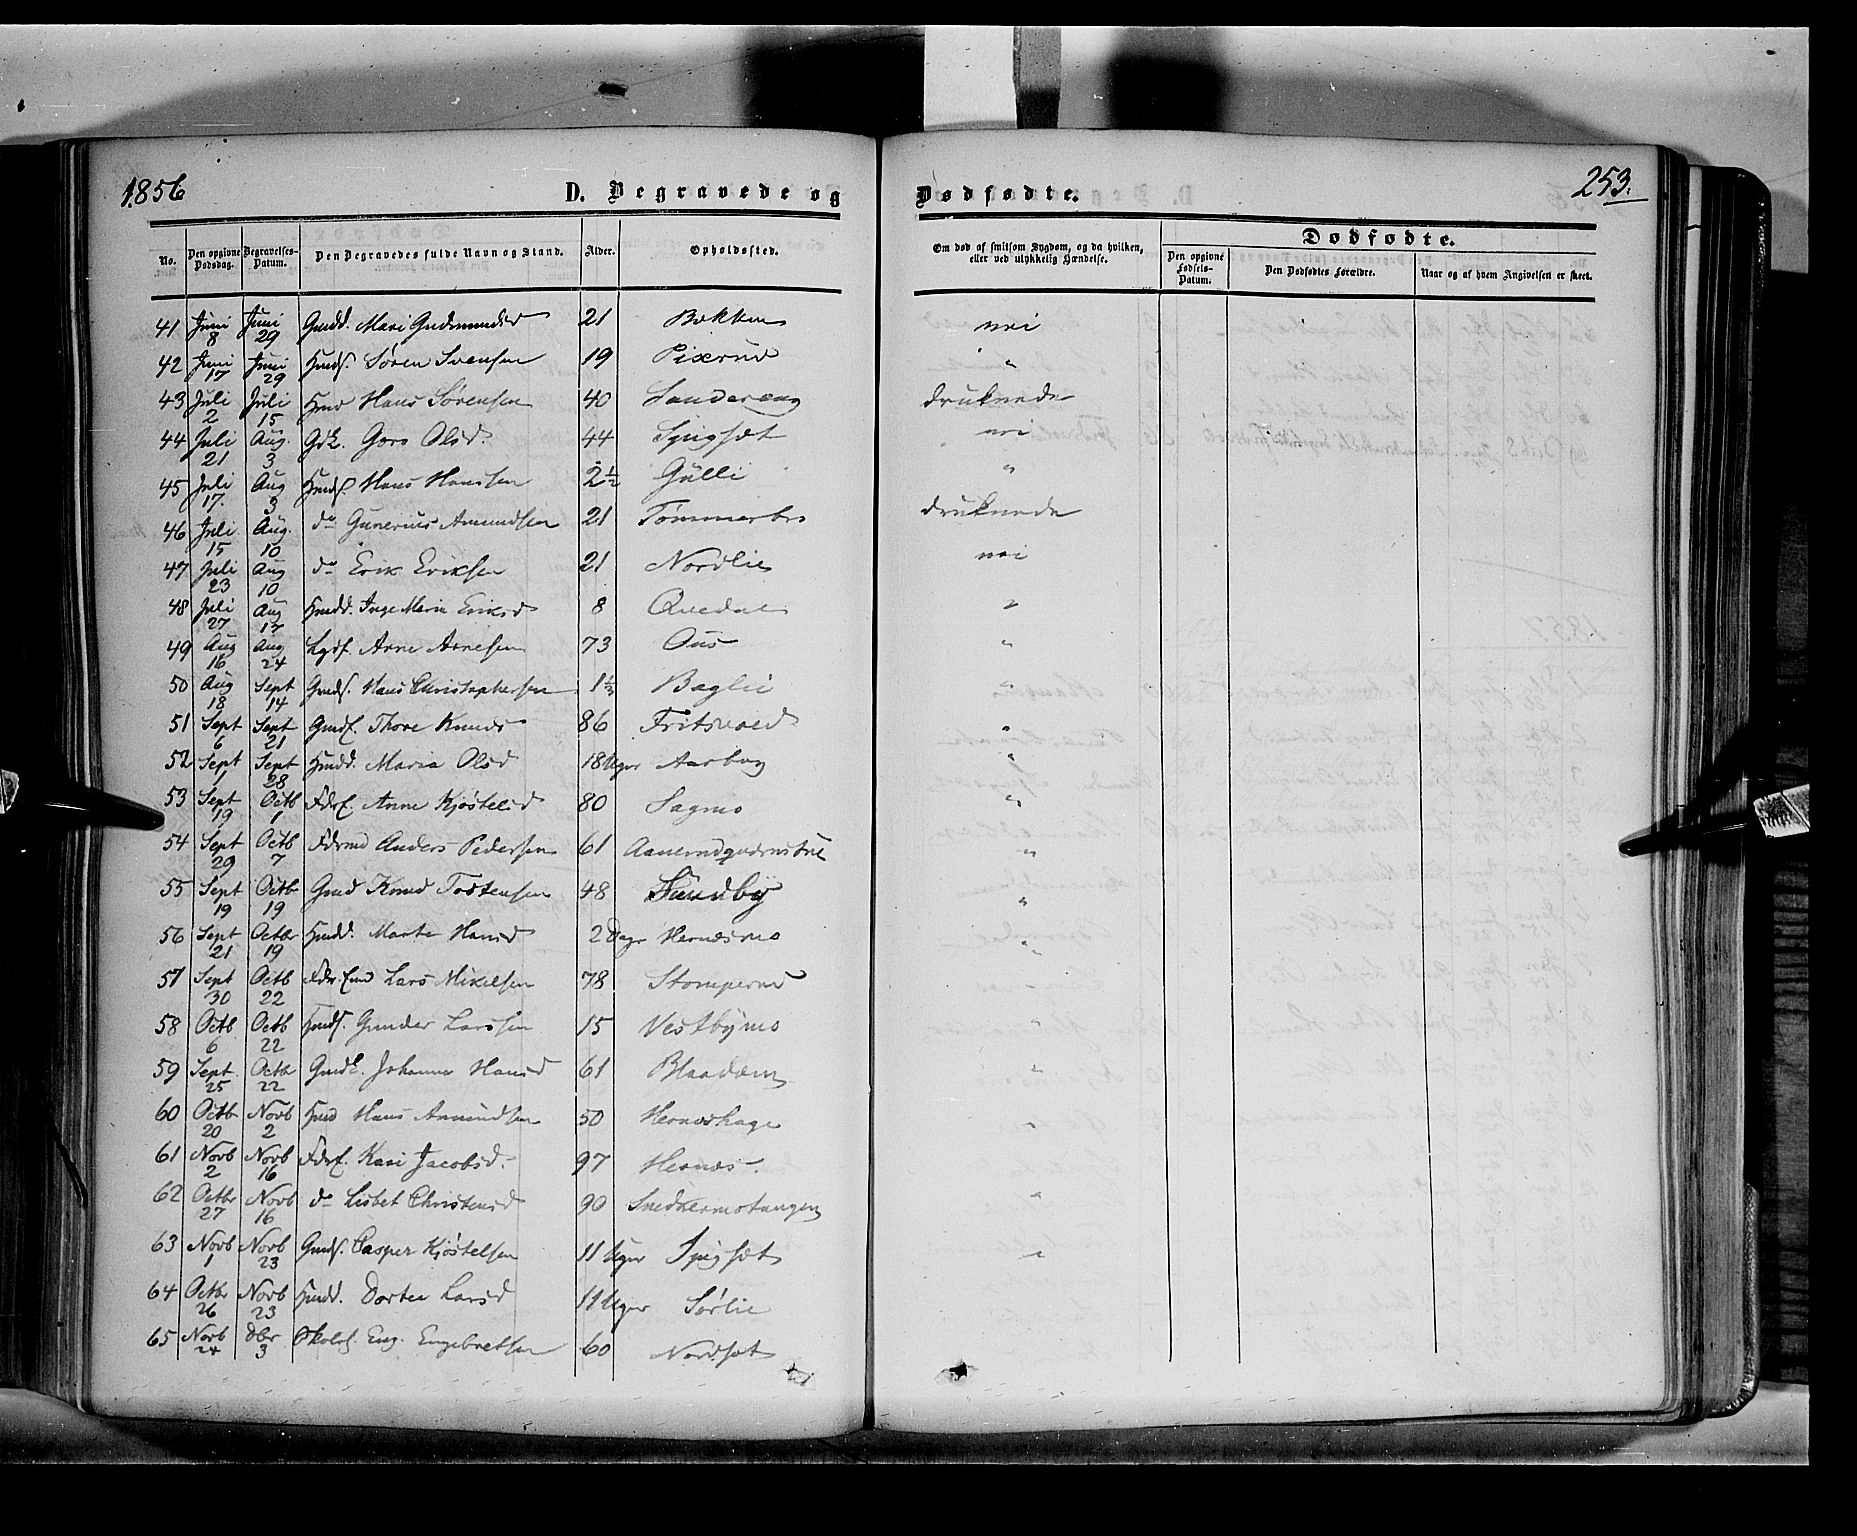 1856
D. Begravede og Dødfødte.
253.
No. Den opgivne Dødsdag. Begravelses-Datum. Den Begravedes fulde Navn og Stand. Alder. Opholdssted. Om død af smitsom Sygdom, og da hvilken, eller ved ulykkelig Hændelse. Dødfødte.
Den opgivne Fødsels-Datum. Den Dødfødtes Forældre. Naar og af hvem Angivelsen er skeet.
41 Juni 8 Juni 29 Gmdd. Mari Gudmundsd 21 Bekken nei
42 Juni 17 Juni 29 Hmds. Søren Svensen 19 Pixrud "
43 Juli 2 Juli 15 Hmd Hans Sørensen 40 Sandereng druknede
44 Juli 21 Aug. 3 Gdk. Goro Olsd. 44 Spigsæt nei
45 Juli 17. Aug 3 Hmds. Hans Hanssen 2½ Gulli "
46 Juli 15 Aug. 10 do Gunerius Amundsen 21 Tømmerbr druknede
47 Juli 23 Aug 10 do Erik Eriksen 21 Nordlie nei
48 Juli 27 Aug 17 Hmdd. Inge Marie Eriksd 8 Quedal "
49 Aug 16 Aug 24 Lgdf. Arne Arnesen 73 Ous "
50 Aug 18 Sept 14 Gmds. Hans Christophersen 1⅓ Baglie "
51 Sept 6 Sept 21 Thore Knuds 86 Fritsvold "
52 Sept 1 Sept 28 Hmdd. Maria Olsd 18 Uger Aasbog "
53 Sept 19 Octb 1 Fdrf. Anne Kjøstelsd 80 Sagmo "
54 Sept 29 Octb 7 Fdrmd Anders Pedersen 61 "
55 Sept 19 Octb 19 Gmd Knud Tostensen 48 Sundby "
56 Sept 21 Octbr 19 Hmdd. Marte Hansd 2 Dage Hernæsmo "
57 Sept 30 Octb 22 Lars Mikelsen 78 Stomperud "
58 Octb 6 Octb 22 Hmds. Gunder Larssen 15 Vestbymo "
59 Sept 25 Octbr 22 Gmdk. Johanne Hansd 61 Blaadam "
60 Octb 20 Novb 2 Hmd Hans Amundsen 50 Hernæshage "
61 Novb 2 Novb 16 Fdrf. Kari Jacobsd. 97 Hernæs.
62 Octbr 27 Novb 16 do Lisbet Christensd 90 Snedkermotangen "
63 Novb 1 Novb 23 Gmds. Casper Kjøstelsen 11 Uger Spigsæt "
64 Octbr 26 Novb 23 Hmdd. Dortea Larsd 11 Uger Sørlie
65 Novb 24 Dbr 3 Skolel. Eng. Engebretsen 60 Nordsæt